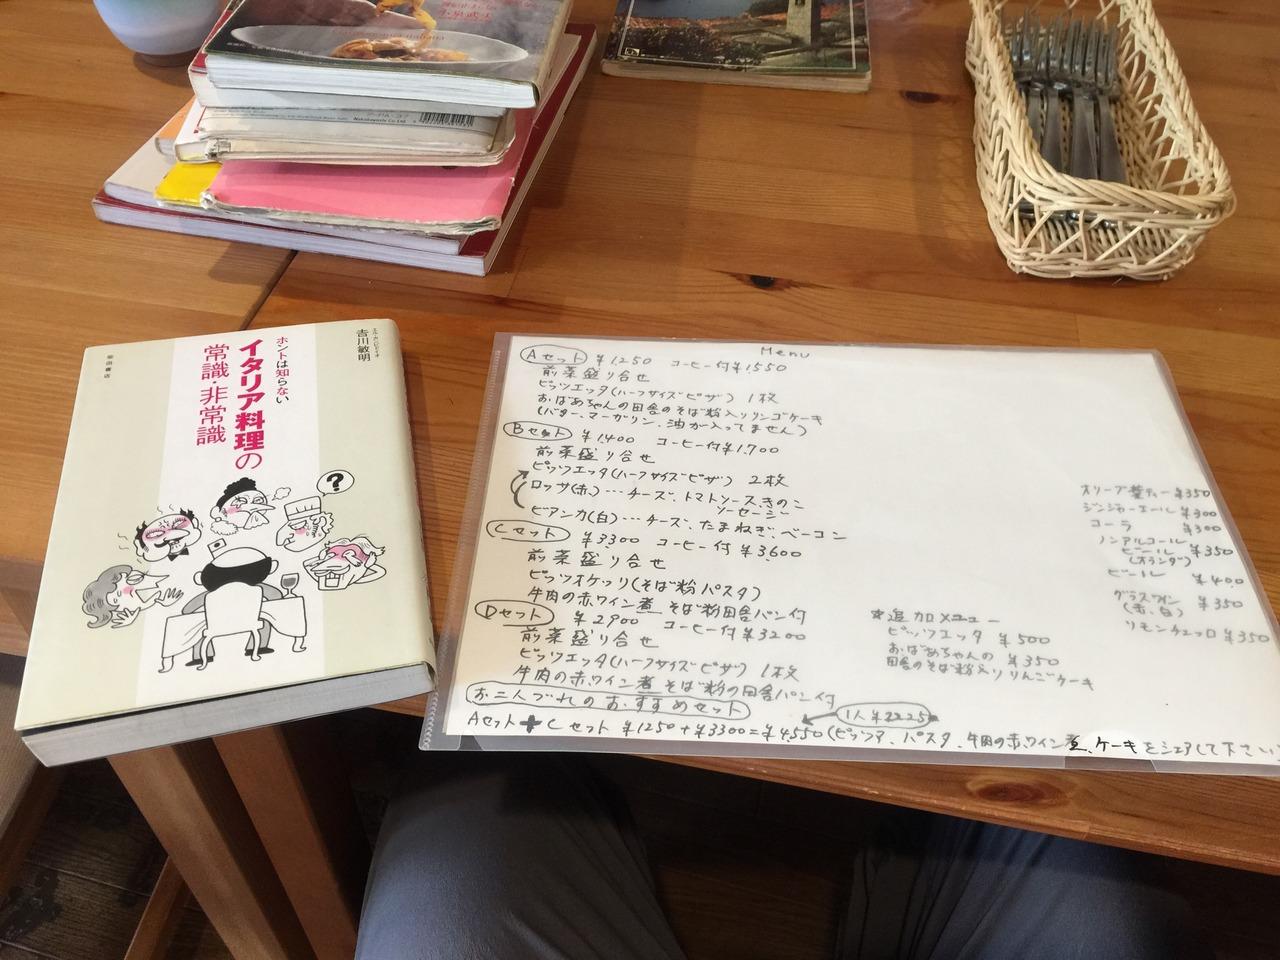 Nakabayashi Co Ltd.
エル・カンピドイオ
吉川敏明
ホントは知らない
イタリア料理の
常識・非常識
柴田書店
?
Menu
Aセット ¥1250 コーヒー付¥1,550
前菜盛り合せ
ピッツエッタ(ハーフサイズピザ) 1枚
おばあちゃんの田舎のそば粉入りリンゴケーキ
(バター、マーガリン、油が入ってません)
Bセット ¥1400 コーヒー付¥1,700
前菜盛り合せ
ピッツエッタ(ハーフサイズピザ) 2枚
ロッサ(赤)…チーズ、トマトソース、きのこ
ソーセージ
ビアンカ(白)…チーズ、たまねぎ、ベーコン
Cセット ¥3300 コーヒー付 ¥3,600
前菜盛り合せ
ピッツオケッリ(そば粉パスタ)
牛肉の赤ワイン煮 そば粉田舎パン付
Dセット ¥2900 コーヒー付 ¥3200
前菜盛り合せ
ピッツエッタ(ハーフサイズピザ) 1枚
牛肉の赤ワイン煮 そば粉の田舎パン付
お二人づれのおすすめセット
1人¥2225
Aセット+Cセット ¥1250+¥3300=¥4,550(ピッツア、パスタ、牛肉の赤ワイン煮、ケーキをシェアして下さい)
オリーブ葉ティー ¥350
ジンジャーエール ¥300
コーラ ¥300
ノンアルコール
ビール ¥350
(オランダ)
ビール ¥400
グラスワイン ¥350
(赤、白)
リモンチェッロ ¥350
☆追加メニュー
ピッツエッタ ¥500
おばあちゃんの ¥350
田舎のそば粉入りりんごケーキ